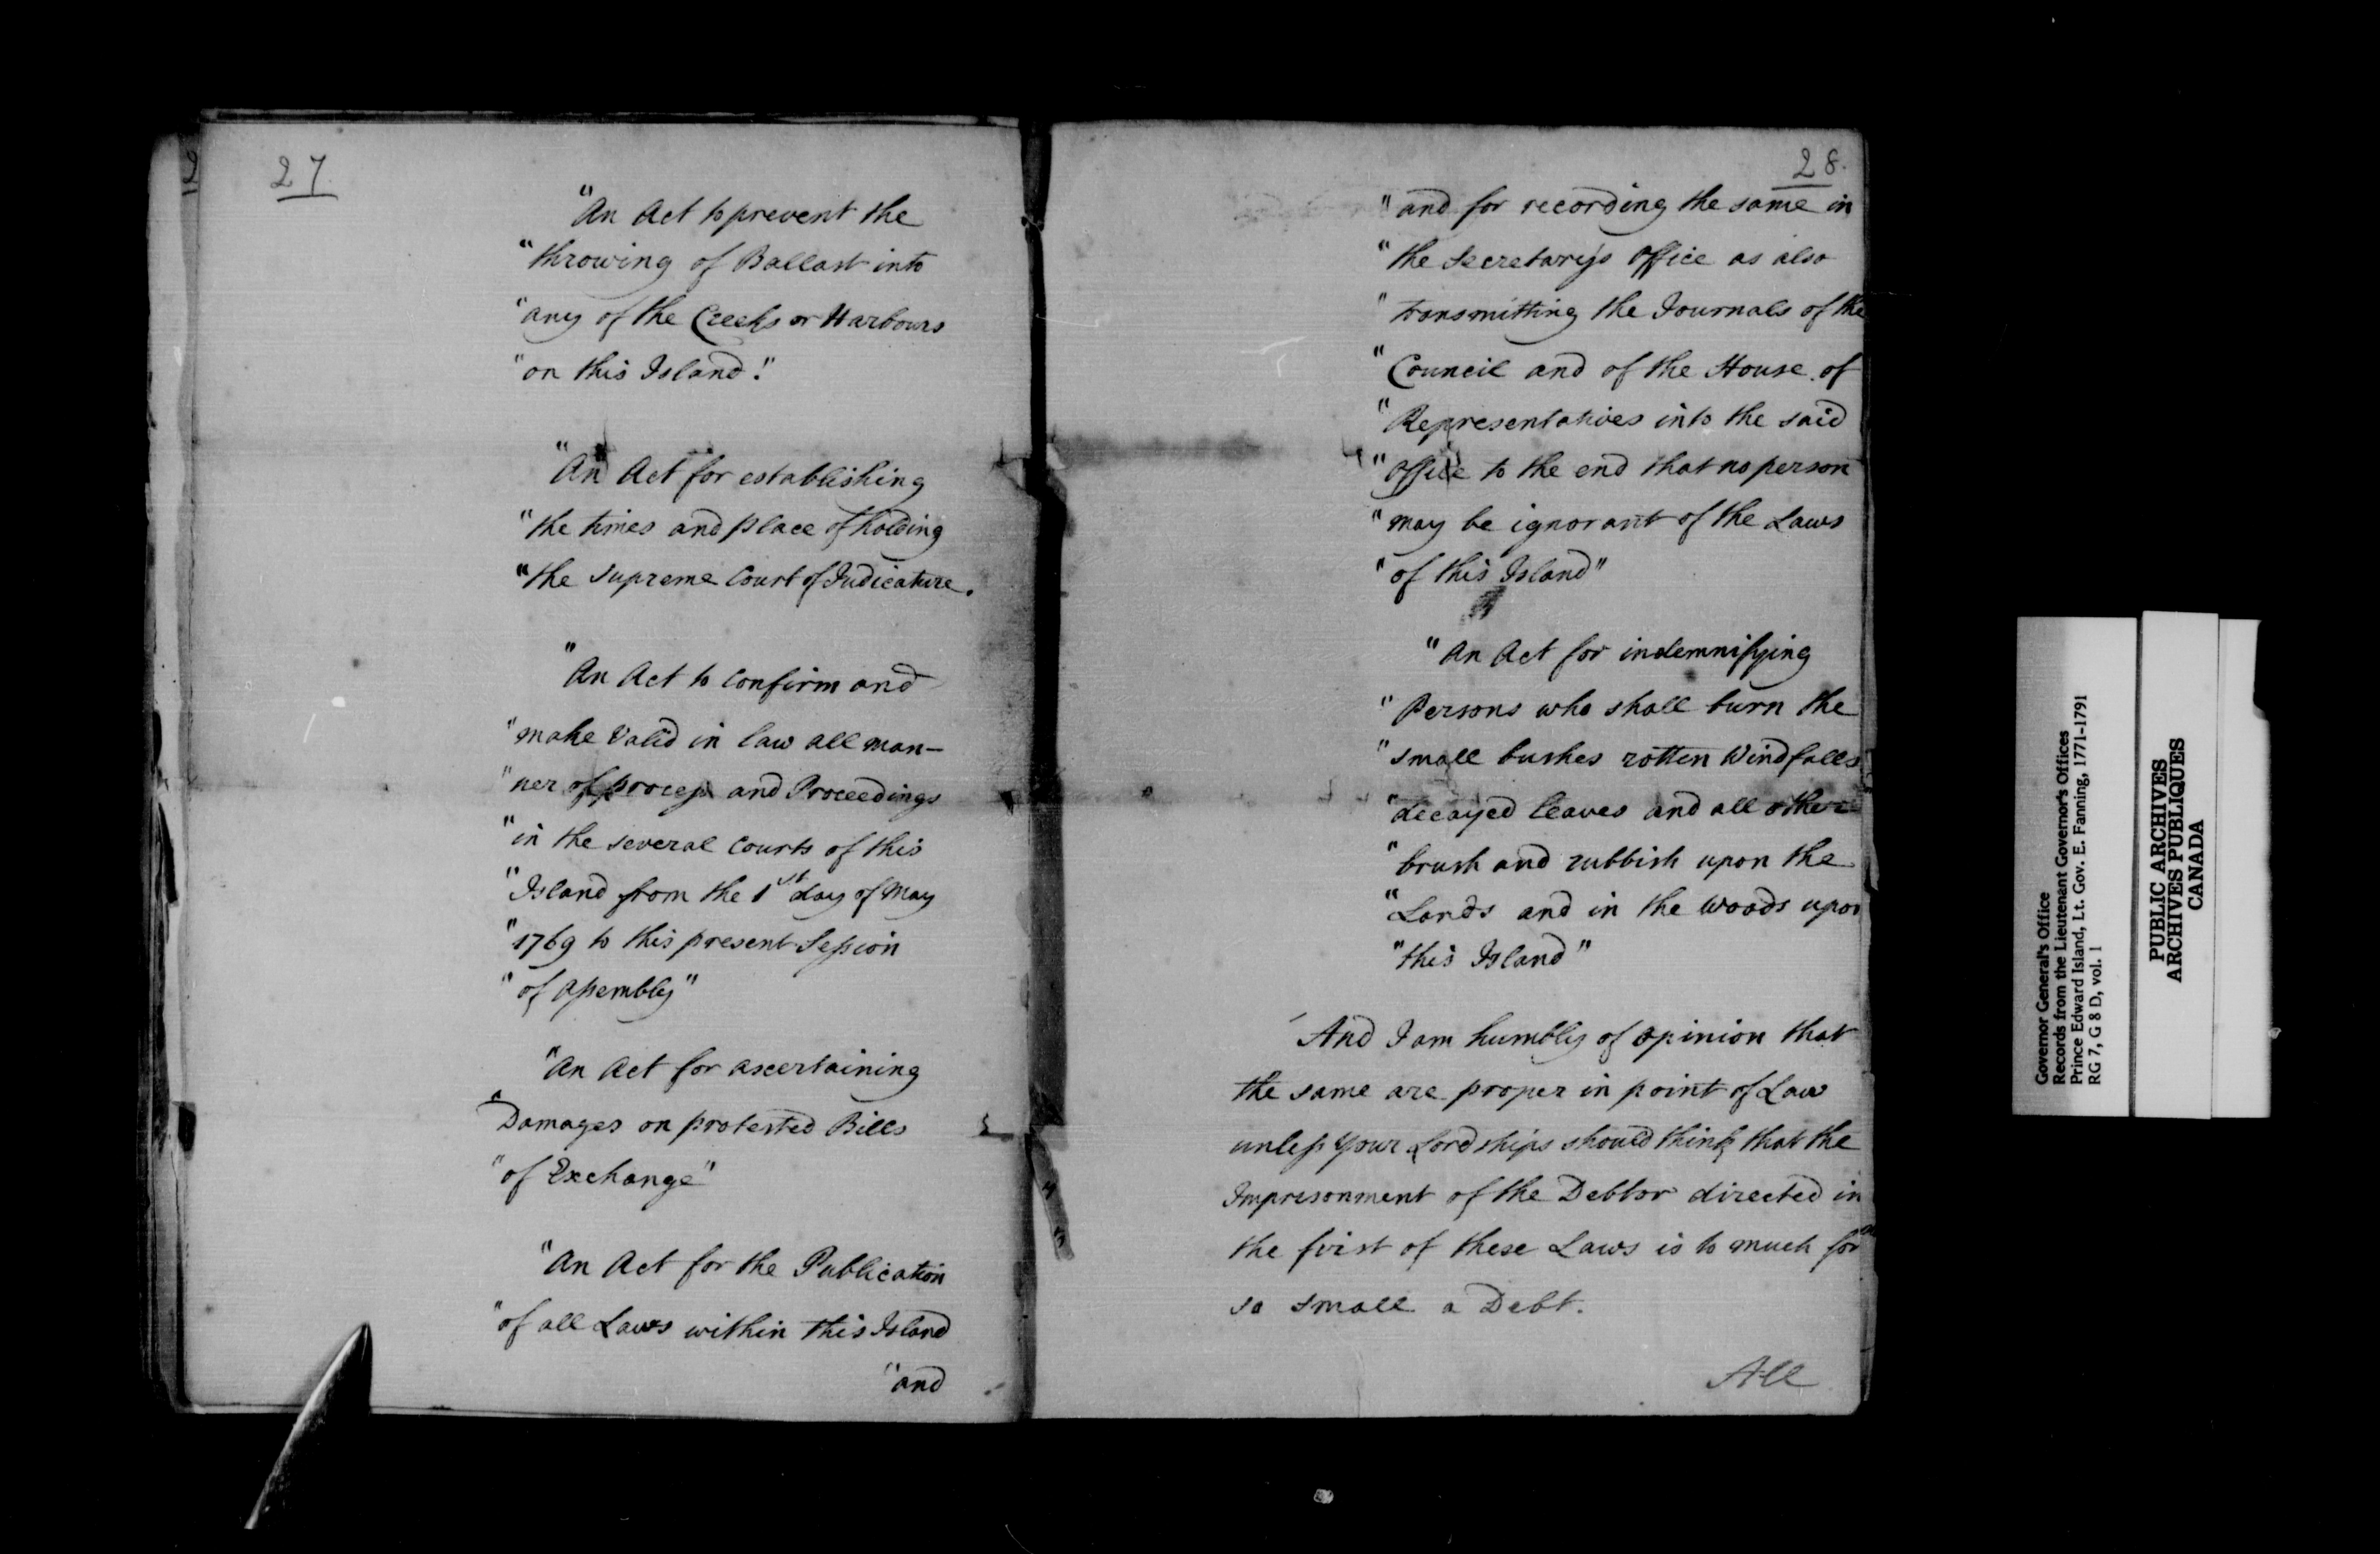 27
"An Act to prevent the
"throwing of Ballast into
"any of the Creeks or Harbours
"on this Island."
"An Act for establishing
"the times and place of holding
"the Supreme Court of Judicature.
"An Act to Confirm and
"make Valid in law all man-
"ner of process and Proceedings
"in the several Courts of this
"Island from the 1st day of May
"1769 to this present Session
"of Assembly"
"An Act for ascertaining
"Damages on protested Bills
"of Exchange"
"An Act for the Publication
"of all Laws within this Island
"and
28.
"and for recording the same in
"the Secretary's Office as also
"transmitting the Journals of the
"Council and of the House of
"Representatives into the said
"Office to the end that no person
"may be ignorant of the Laws
"of this Island"
"An Act for indemnifying
"Persons who shall burn the
"small bushes rotten Windfalls
"decayed leaves and all other
"brush and rubbish upon the
"Lands and in the Woods upon
"this Island"
And I am humbly of opinion that
the same are proper in point of Law
unless Your Lordships should think that the
Imprisonment of the Debtor directed in
the first of these Laws is to much for
so small a Debt.
All
Governor General's Office
Records from the Lieutenant Governor's Offices
Prince Edward Island, Lt. Gov. E. Fanning, 1771-1791
RG 7, G 8 D, vol. 1
PUBLIC ARCHIVES
ARCHIVES PUBLIQUES
CANADA